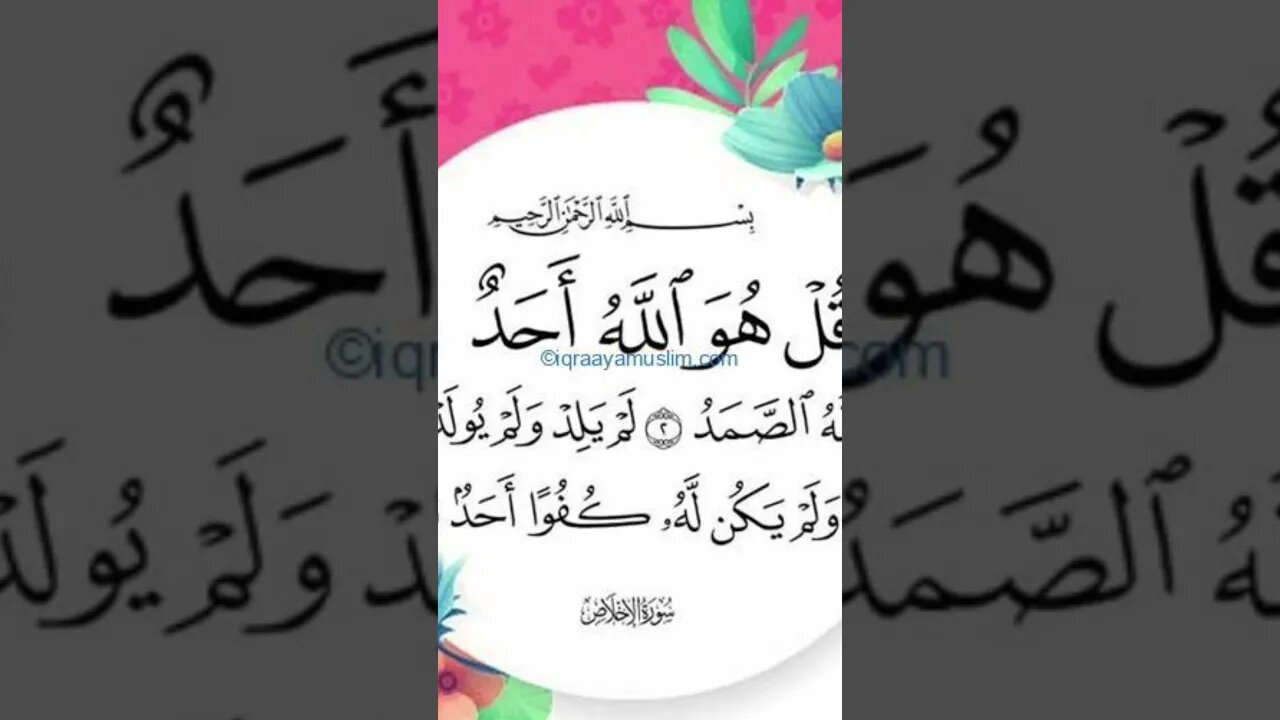 بِسْمِ ٱللَّهِ ٱلرَّحْمَٰنِ ٱلرَّحِيمِ
قُلْ هُوَ ٱللَّهُ أَحَدٌ
©iqraayamuslim.com
ٱلصَّمَدُ ٢ لَمْ يَلِدْ وَلَمْ يُولَدْ
وَلَمْ يَكُن لَّهُۥ كُفُوًا أَحَدٌۢ
سُورَةُ الإِخْلَاصِ